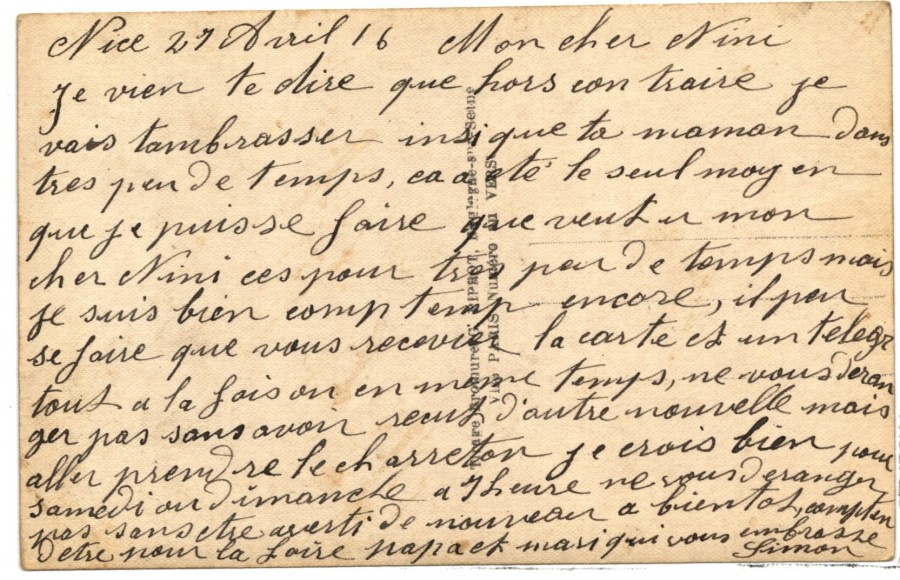 Nice 27 Avril 16 Mon cher Nini
Je vien te dire que hors contraire je
vais tambrasser insi que ta maman dans
tres peu de temps, ca a eté le seul moyen
que je puisse faire que veut u mon
cher Nini ces pour tres peu de temps mais
je suis bien comptemp encore, il peu
se faire que vous recevier la carte et un telegr
tout a la foison en meme temps, ne vous deran
ger pas sans avoir recut d'autre nouvelle mais
aller prendre le charreton je crois bien pour
samedi ou dimanche a 7 heure ne vous deranger
pas sans etre averti de nouveau a bientot, compten
d'etre pour la foire papa et mari qui vous embrasse
Simon
PARIS Numéro VERS